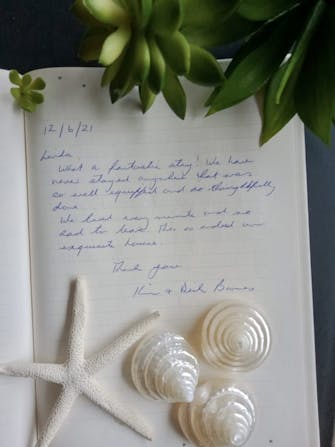 12/6/21
Linda,
What a fantastic stay! We have
never stayed anywhere that was
so well equipped and so thoughtfully
done.
We loved every minute and so
sad to leave. This is indeed an
exquisite house.
Thank you
Kim &